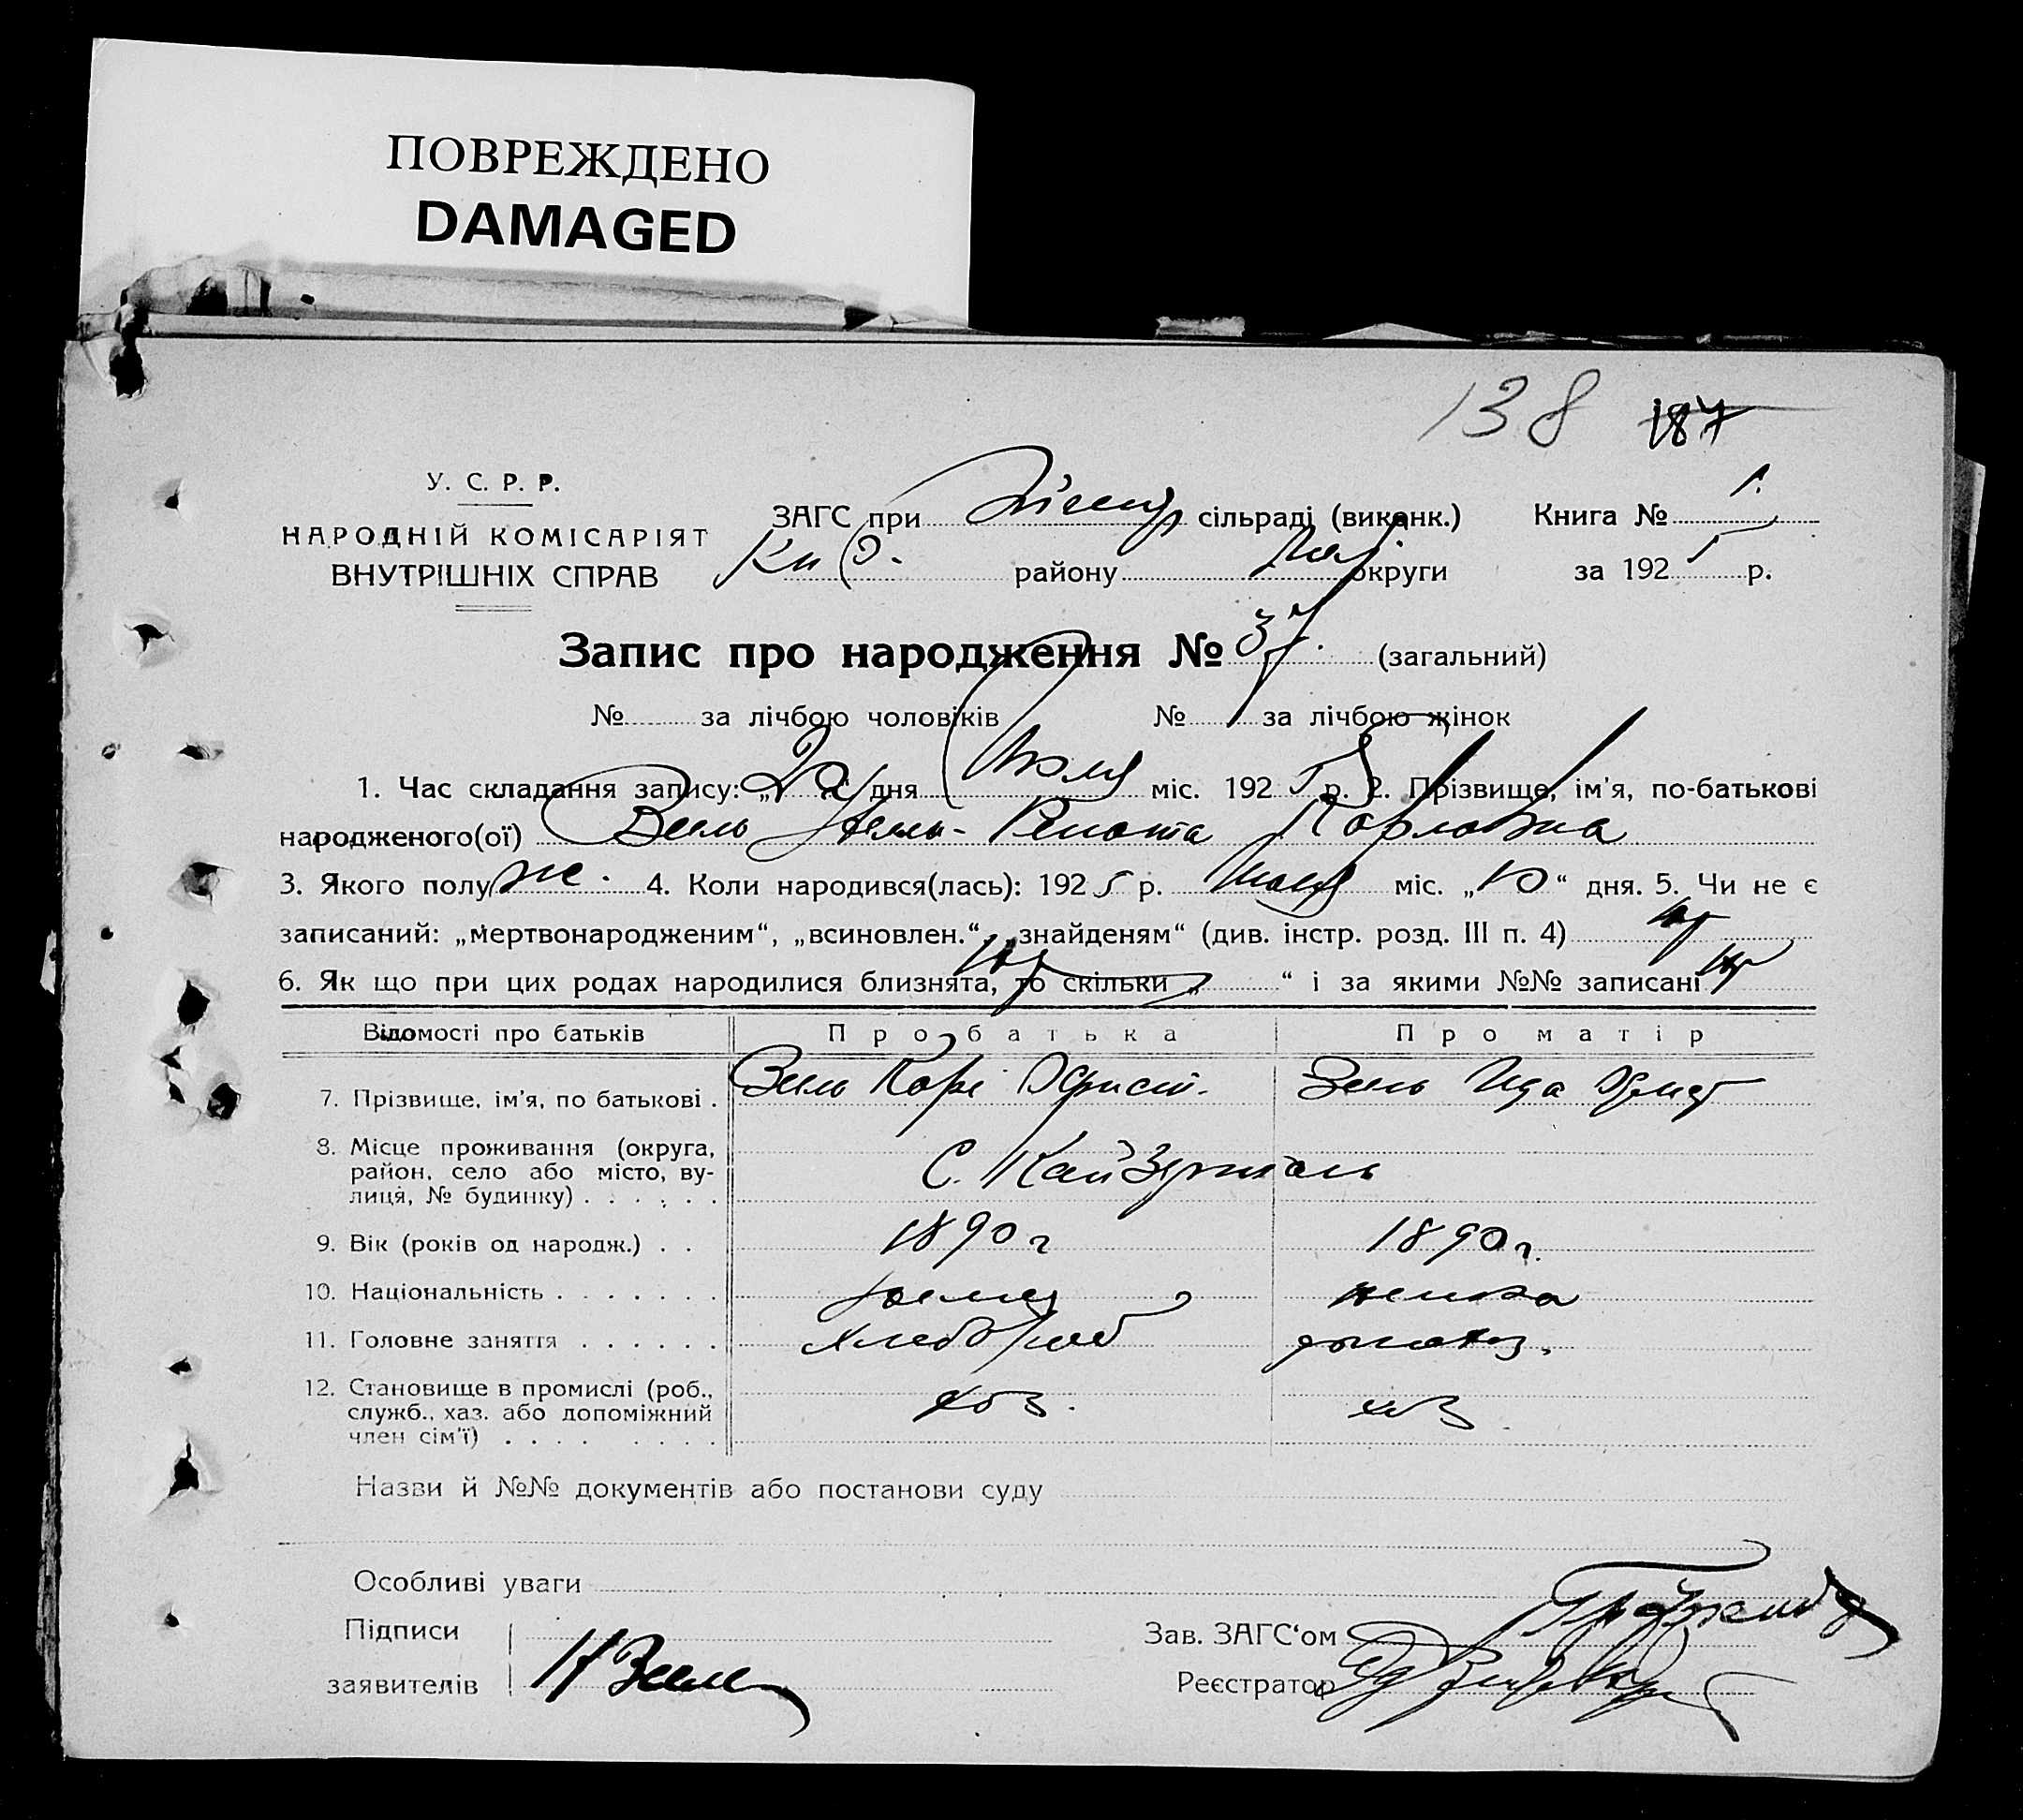 ПОВРЕЖДЕНО
DAMAGED
138 187
У. С. Р. Р.
НАРОДНІЙ КОМІСАРІЯТ
ВНУТРІШНІХ СПРАВ
ЗАГС при сільраді (виконк.) Книга № 1.
району округи за 1925 р.
Запис про народження № 37. (загальний)
№ за лічбою чоловіків № за лічбою жінок
1. Час складання запису: „ “ дня Июля міс. 1925 р. 2. Прізвище, ім'я, по-батькові
народженого(ої) Зель Рената Карловна
3. Якого полу ж. 4. Коли народився(лась): 1925 р. Июля міс. „10“ дня. 5. Чи не є
записаний: „мертвонародженим“, „всиновлен.“, „знайденям“ (див. інстр. розд. III п. 4)
6. Як що при цих родах народилися близнята, то скільки „ “ і за якими №№ записані
Відомості про батьків Про батька Про матір
7. Прізвище, ім'я, по батькові . Зель Карл Зель Ида
8. Місце проживання (округа,
район, село або місто, ву-
лиця, № будинку) . . . . . . С. Кайзерталь
9. Вік (років од народж.) . . 1890 г 1890 г.
10. Національність . . . . . . . немец немка
11. Головне заняття . . . . . . хлебороб домохоз.
12. Становище в промислі (роб.,
служб., хаз. або допоміжний
член сім'ї) . . . . . . . . хоз. хоз
Назви й №№ документів або постанови суду
Особливі уваги
Підписи Зав. ЗАГС‘ом
заявителів К Зель Реєстратор